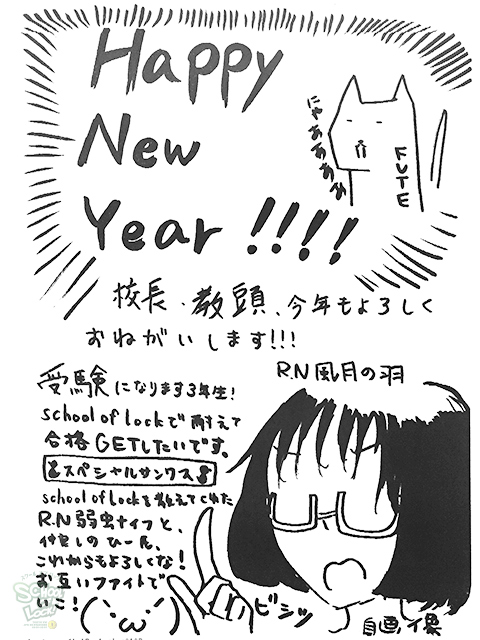 Happy
New
Year !!!!
にゃああああ
FUTE
校長、教頭、今年もよろしく
おねがいします!!!
R.N 風月の羽
受験になります3年生!
school of Lockで耐えて
合格GETしたいです。
スペシャルサンクス
school of Lockを教えてくれた
R.N 弱虫ナイフと、
仲良しのひーん、
これからもよろしくな!
お互いファイトで
いこ!(`・ω・´)
ビシッ
自画像
SCHOOL OF LOCK!